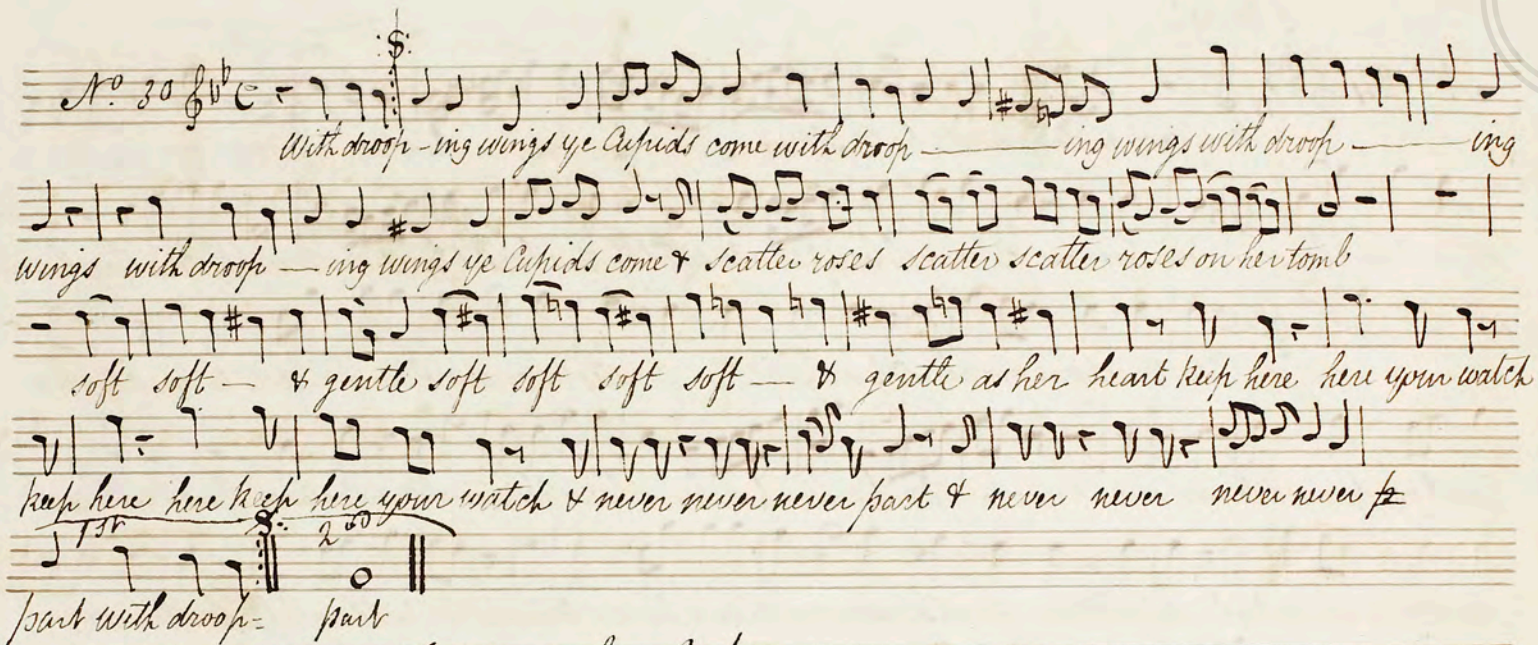 No. 30
With droop-ing wings ye Cupids come with droop — ing wings with droop — ing
wings with droop — ing wings ye Cupids come & scatter roses scatter scatter roses on her tomb
soft soft — & gentle soft soft soft soft — & gentle as her heart keep here here your watch
keep here here keep here your watch & never never never part & never never never never
1st 2nd
part with droop= part